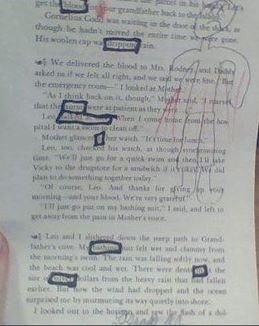 get the blood our grandfather back to the
Cornelius Codd was waiting in the door of the shack, as
though he hadn't moved the entire time we were gone.
His woolen cap was dripping rain.
We delivered the blood to Mrs. Rodney and Daddy
asked us if we felt all right, and we said we were fine.
the emergency room—" I looked at Mother
"As I think back on it, though," Mother said, "I
that the nurses were as patient as they were
Leo "When I come home from the hos-
pital I want a swim to clean off."
Mother glanced at her watch. "It's time for lunch."
Leo, too, checked his watch, as though
time. "We'll just go for a quick swim and then I'll take
Vicky to the drugstore for a sandwich if it's okay. We did
plan to do something together today."
"Of course, Leo. And thanks for giving up your
morning—and your blood. We're very grateful."
"I'll just go put on my bathing suit," I said, and left to
get away from the pain in Mother's voice.
Leo and I slithered down the steep path to Grand-
father's cove. My bathing suit felt wet and clammy from
the morning's swim. The rain was falling softly now, and
the beach was cool and wet. There were dents in the
dollars from the heavy rain that had fallen
earlier. But now the wind had dropped and the ocean
surprised me by murmuring its way quietly into shore.
I looked out to the horizon and saw the flash of a dol-